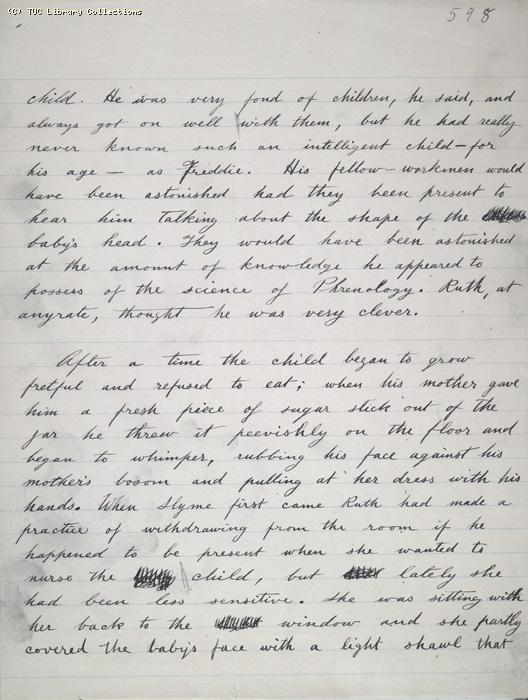 (C) TUC Library Collections
598
child. He was very fond of children, he said, and
always got on well with them, but he had really
never known such an intelligent child - for
his age — as Freddie. His fellow-workmen would
have been astonished had they been present to
hear him talking about the shape of the
baby's head. They would have been astonished
at the amount of knowledge he appeared to
possess of the science of Phrenology. Ruth, at
anyrate, thought he was very clever.
After a time the child began to grow
fretful and refused to eat; when his mother gave
him a fresh piece of sugar stick out of the
jar he threw it peevishly on the floor and
began to whimper, rubbing his face against his
mother's bosom and pulling at her dress with his
hands. When Slyme first came Ruth had made a
practice of withdrawing from the room if he
happened to be present when she wanted to
nurse the child, but lately she
had been less sensitive. She was sitting with
her back to the window and she partly
covered the baby's face with a light shawl that